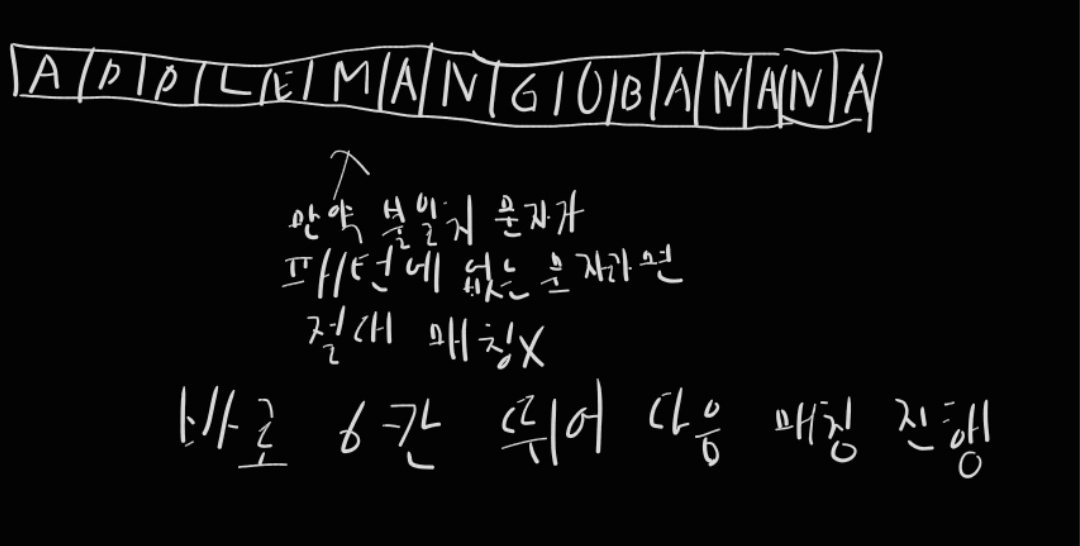 APPLEMANGOBANANA
만약 불일치 문자가
패턴에 없는 문자라면
절대 매칭X
바로 6칸 뛰어 다음 매칭 진행